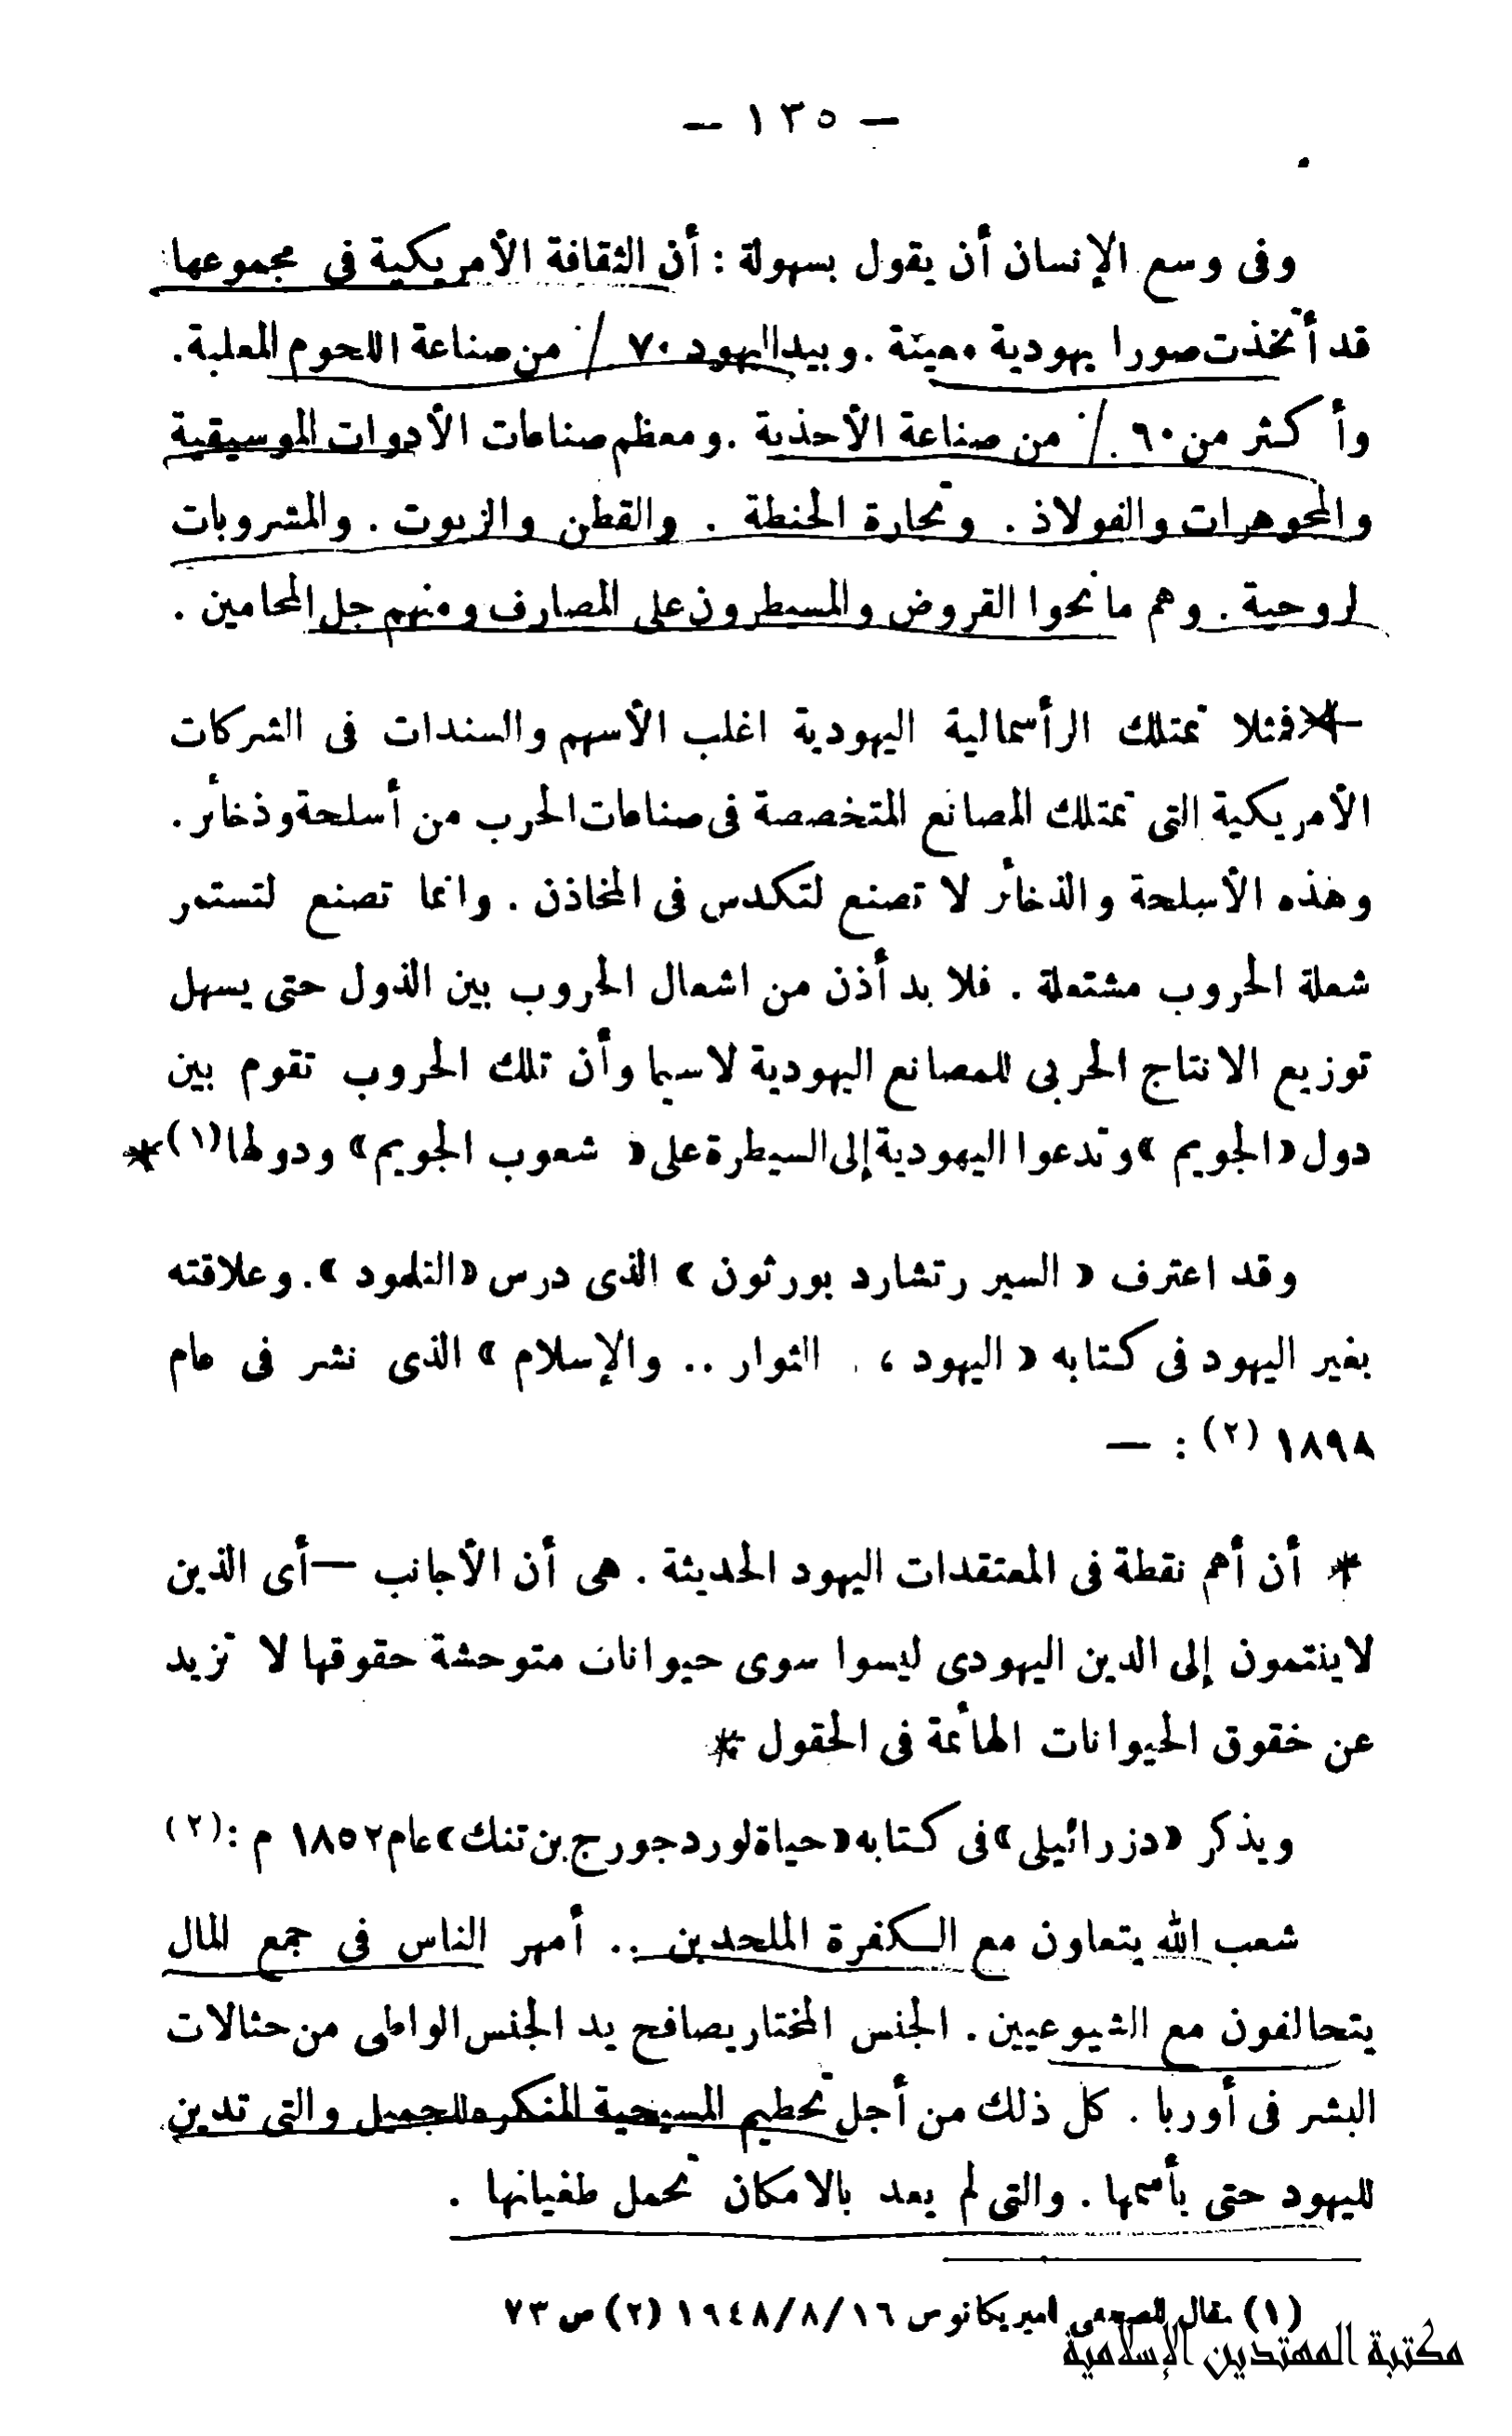 — ١٣٥ —
وفى وسع الإنسان أن يقول بسهولة : أن الثقافة الأمريكية فى مجموعها
قد أتخذت صورا يهودية معينة . وبيد اليهود ٧٠ ٪ من صناعة اللحوم المعلبة .
وأ كثر من ٩٠ ٪ من صناعة الأحذية . ومعظم صناعات الأدوات الموسيقية
والمجوهرات والفولاذ . وتجارة الحنطة . والقطن والزيوت . والمشروبات
لروحية . وهم مانحوا القروض والمسيطرون على المصارف ومنهم جل المحامين .
فمثلا تمتلك الرأسمالية اليهودية اغلب الأسهم والسندات فى الشركات
الأمريكية التى تمتلك المصانع المتخصصة فى صناعات الحرب من أسلحة وذخائر .
وهذه الأسلحة والذخائر لا تصنع لتكدس فى المخاذن . وانما تصنع لتستمر
شعلة الحروب مشتعلة . فلا بد أذن من اشعال الحروب بين الدول حتى يسهل
توزيع الانتاج الحربى للمصانع اليهودية لاسيما وأن تلك الحروب تقوم بين
دول « الجويم » وتدعوا اليهودية إلى السيطرة على « شعوب الجويم » ودولها (١) *
وقد اعترف « السير رتشارد بورثون » الذى درس « التلمود » . وعلاقته
بغير اليهود فى كتابه « اليهود ، . الثوار .. والإسلام » الذى نشر فى عام
١٨٩٨ (٢) : —
* أن أهم نقطة فى المعتقدات اليهود الحديثة . هى أن الأجانب — أى الذين
لاينتمون إلى الدين اليهودى ليسوا سوى حيوانات متوحشة حقوقها لا تزيد
عن خقوق الحيوانات الهائمة فى الحقول *
ويذكر « دزرائيلى » فى كتابه « حياة لورد جورج بن تنك » عام ١٨٥٢ م : (٢)
شعب الله يتعاون مع الكفرة الملحدين .. أمهر الناس فى جمع المال
يتحالفون مع الشيوعيين . الجنس المختار يصافح يد الجنس الواطى من حثالات
البشر فى أوربا . كل ذلك من أجل تحطيم المسيحية المنكره للجميل والتى تدين
لليهود حتى بأسمها . والتى لم يعد بالامكان تحمل طغيانها .
(١) مقال للصحفى اميريكانوس ١٩٤٨/٨/١٦ (٢) ص ٧٣
مكتبة المهتدين الإسلامية